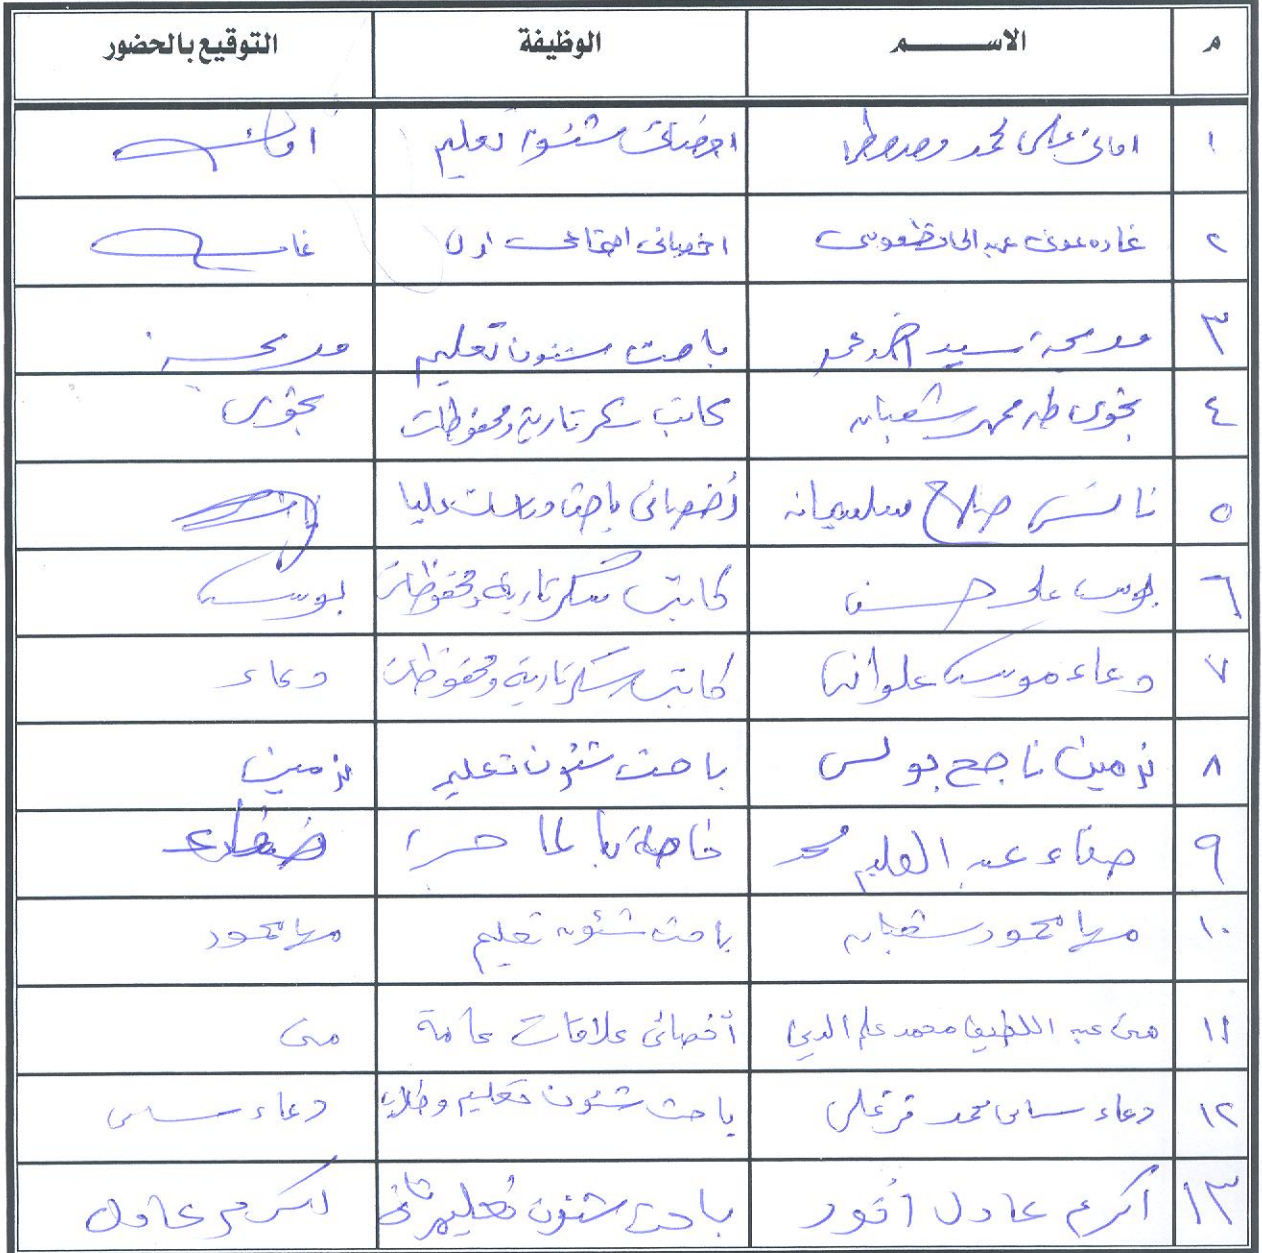 م الاســـــم الوظيفة التوقيع بالحضور
١ امانى على محمد مصطفى اخصائى شئون تعليم امانى
٢ غاده عونى عبد الحافظ موسى اخصائى اجتماعى اول
٣ مديحة سيد احمد محمد باحث شئون تعليم مديحة
٤ نجوى طه محمد شعبان كاتب سكرتارية ومحفوظات نجوى
٥ صلاح سليمان
٦ على حسن كاتب سكرتارية ومحفوظات
٧ دعاء موسى علوانى كاتب سكرتارية ومحفوظات دعاء
٨ نرمين ناجح بولس باحث شئون تعليم نرمين
٩ صفاء عبد العليم محمد
١٠ مها محمود شعبان باحث شئون تعليم مها محمود
١١ منى عبد اللطيف محمد علم الدين أخصائى علاقات عامة منى
١٢ دعاء سامى محمد فرغلى باحث شئون تعليم وطلاب دعاء سامى
١٣ أكرم عادل أنور باحث شئون تعليم ثانى أكرم عادل